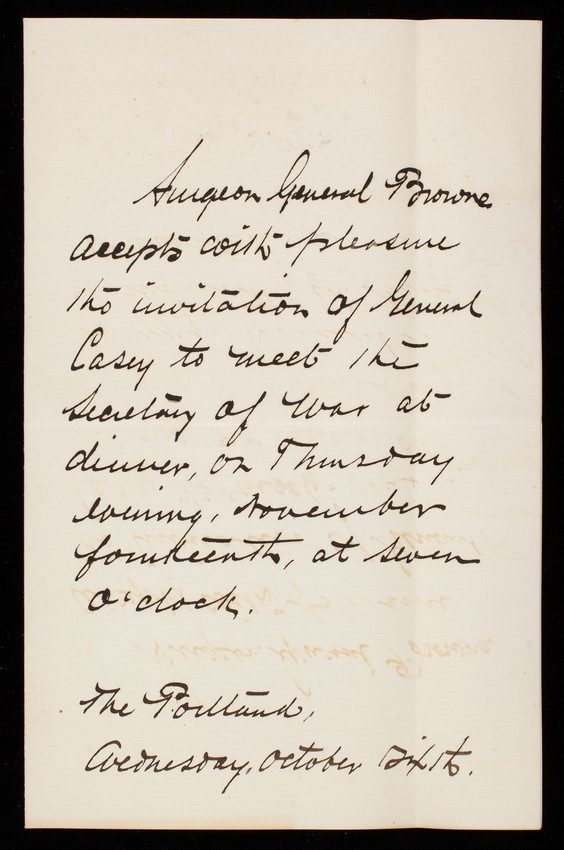 Surgeon General Browne
accepts with pleasure
the invitation of General
Casey to meet the
Secretary of War at
dinner, on Thursday
evening, November
fourteenth, at seven
o'clock.
The Portland,
Wednesday, October Sixth.